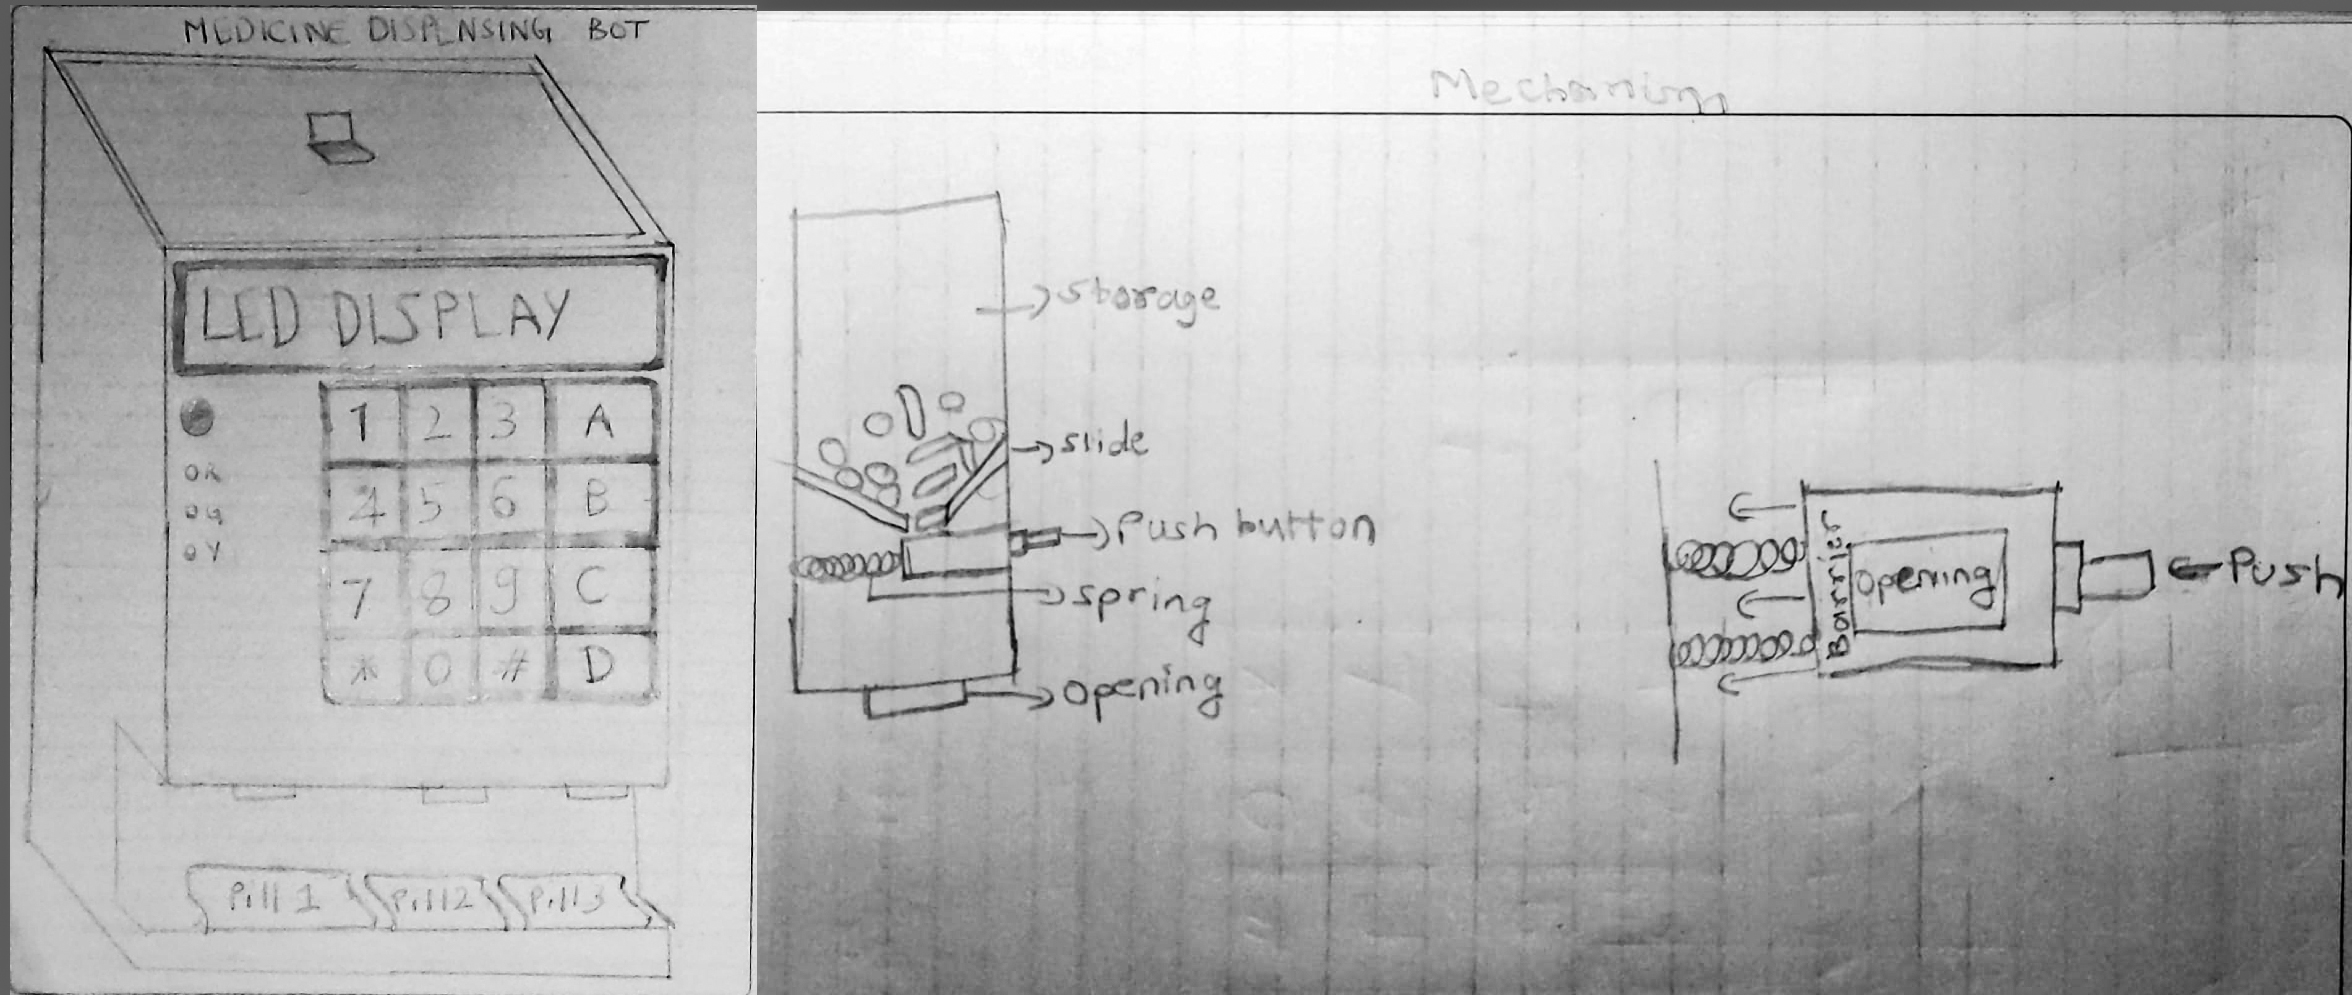 MEDICINE DISPENSING BOT
LED DISPLAY
1 2 3 A
4 5 6 B
7 8 9 C
* 0 # D
OR
OG
OY
Pill 1 Pill 2 Pill 3
Mechanism
Storage
Slide
Push button
Spring
Opening
Barrier
Opening
Push